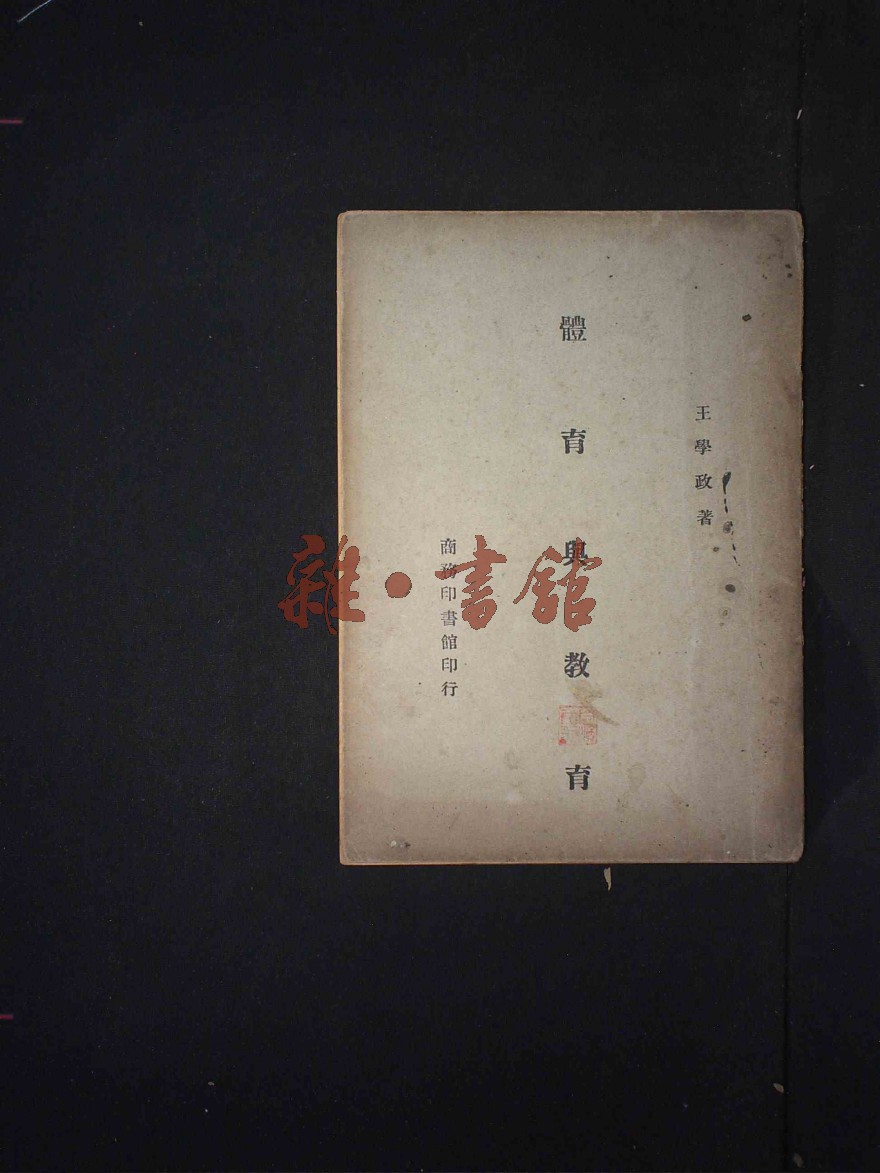 王學政著
體育與教育
商務印書館印行
雜·書館